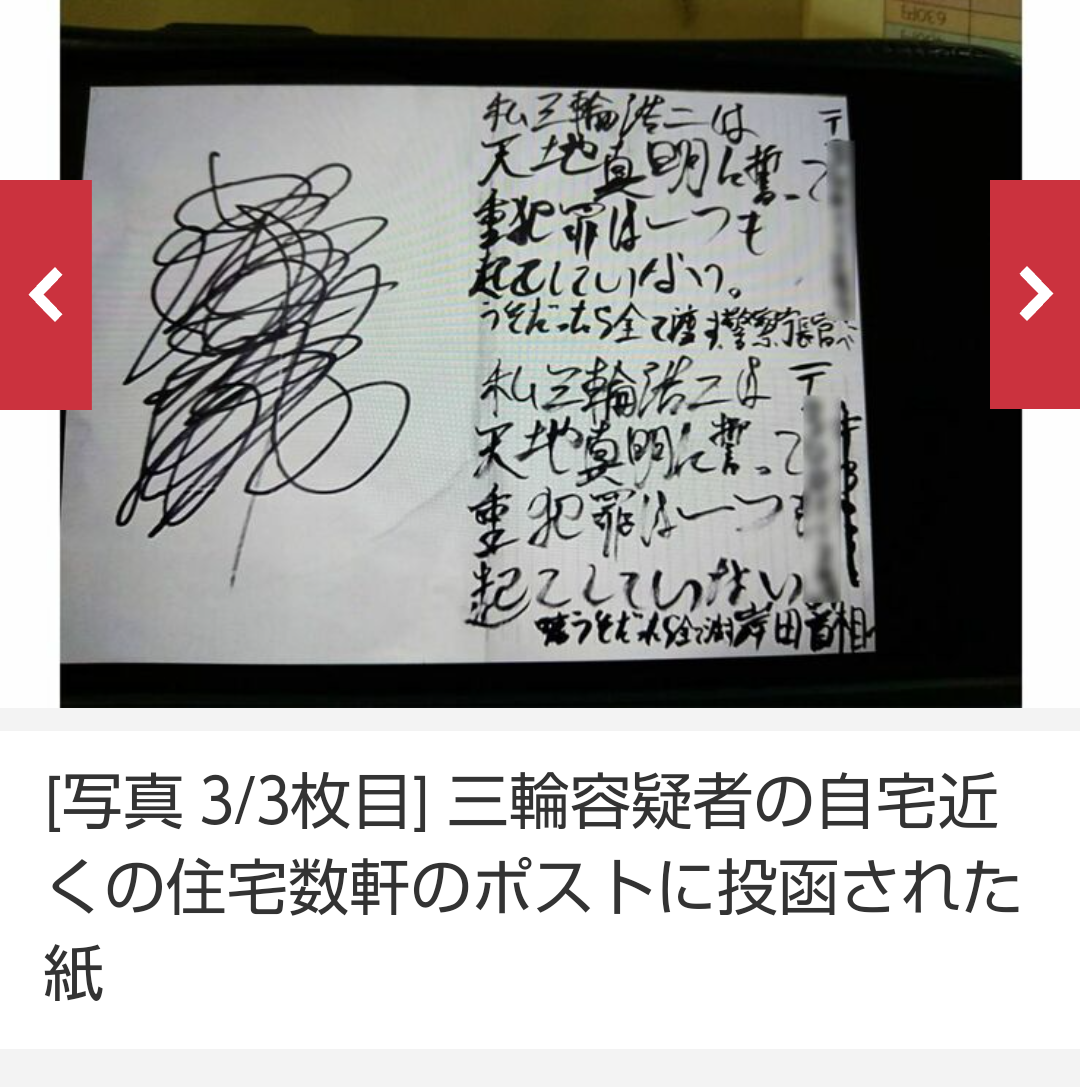 私三輪浩二は
〒
天地真明に誓って
重犯罪は一つも
起こしていない。
うそだったら全て壊す警察庁長官へ
私三輪浩二は
〒
天地真明に誓って
重犯罪は一つも
起こしていない
うそだったら全て 岸田首相
[写真 3/3枚目] 三輪容疑者の自宅近
くの住宅数軒のポストに投函された
紙